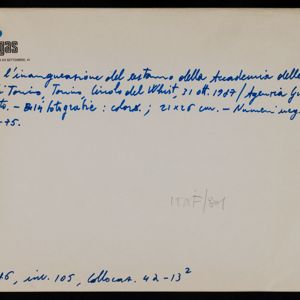 gas
XX SETTEMBRE, 41
l'inaugurazione del restauro della Accademia delle
Torino, Torino, Circolo del Whist, 31 ott. 1987 / Agenzia
fotografie : color. ; 21x26 cm. - Numeri neg
-75.
inv. 105, Collocaz. 42-13²